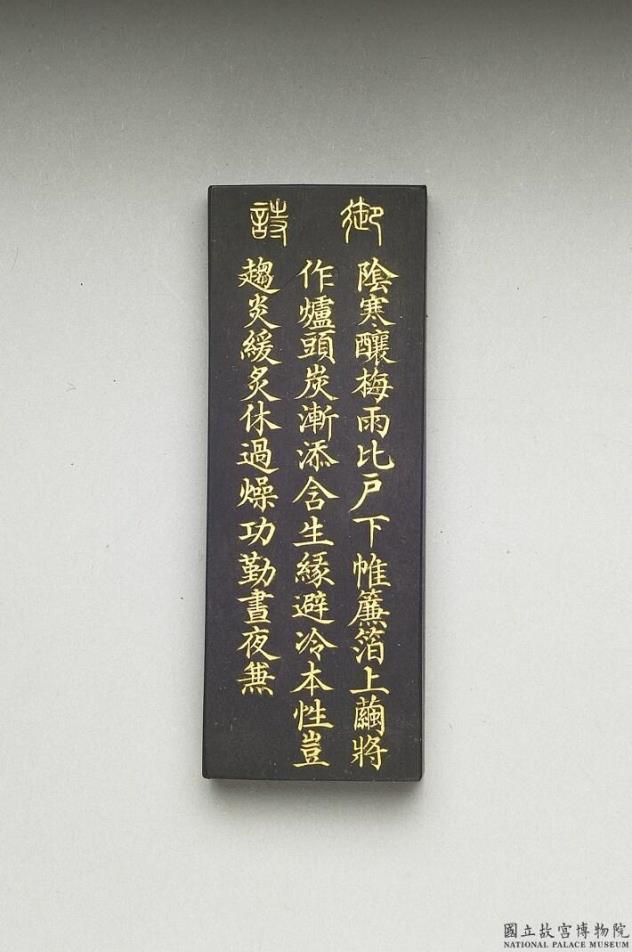 御詩
陰寒釀梅雨比戶下帷簾箔上繭將
作爐頭炭漸添含生緣避冷本性豈
趨炎緩炙休過燥功勤晝夜兼
國立故宮博物院
NATIONAL PALACE MUSEUM